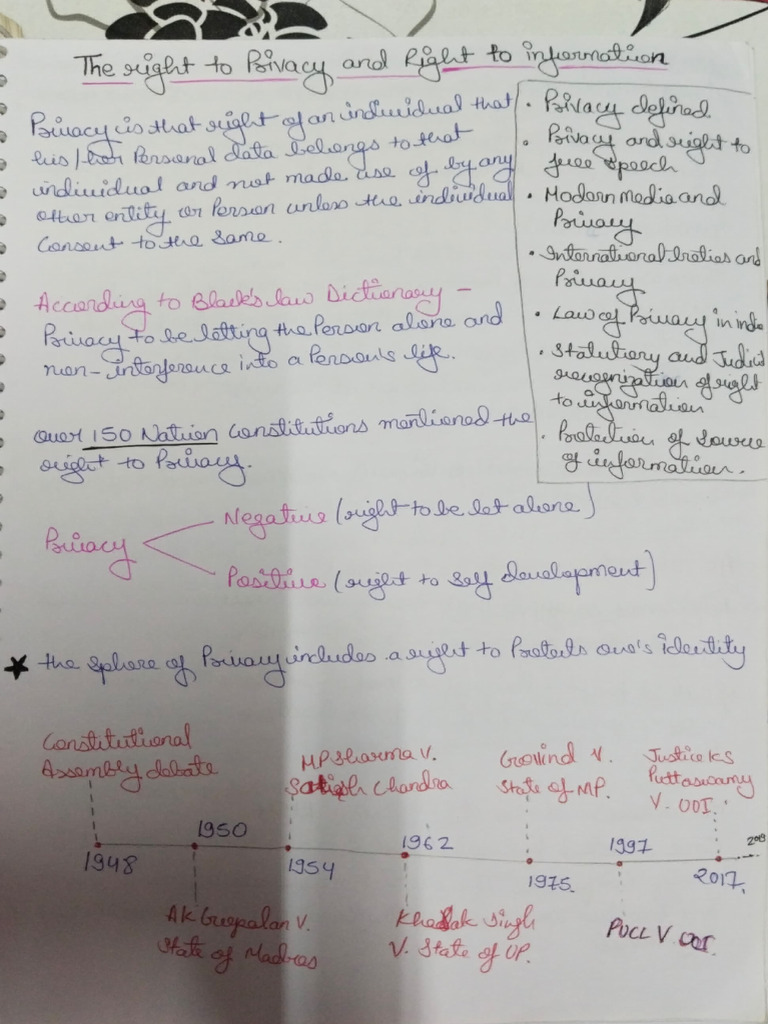 The right to Privacy and Right to information
Privacy is that right of an individual that
his/her Personal data belongs to that
individual and not made use of by any
other entity or Person unless the individual
Consent to the same.
According to Black's law Dictionary -
Privacy to be letting the Person alone and
non-interference into a Person's life.
over 150 Nation Constitutions mentioned the
right to Privacy.
• Privacy defined
• Privacy and right to
free speech
• Modern media and
Privacy
• International treaties and
Privacy
• Law of Privacy in India
• Statutory and Judicial
recognization of right
to information
• Protection of Source
of information.
Privacy
Negative (right to be let alone)
Positive (right to Self development)
★ the sphere of Privacy includes a right to Protects one's identity
Constitutional
Assembly debate
MP Sharma V.
Satish Chandra
Govind V.
State of MP.
Justice KS
Puttaswamy
V. UOI.
1948
1950
1954
1962
1975.
1997
2017.
AK Goopalan V.
State of Madras
Kharak Singh
V. State of UP.
PUCL V UOI.